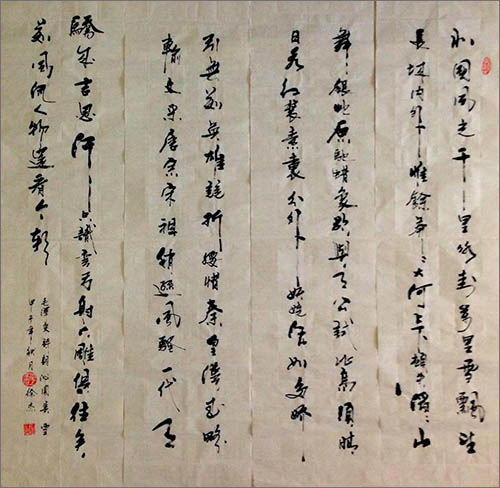 北国风光千里冰封万里雪飘望
长城内外惟馀莽莽大河上下顿失滔滔山
舞银蛇原驰蜡象欲与天公试比高须晴
日看红装素裹分外妖娆如此多娇
引無数英雄競折腰惜秦皇漢武略
輸文采唐宗宋祖稍遜風騷一代天
驕成吉思汗只識彎弓射大雕俱往矣
数風流人物還看今朝
毛澤東詞沁園春雪
甲午年秋月